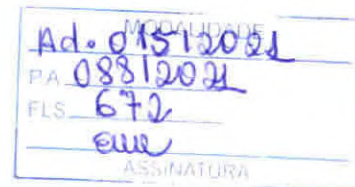 MODALIDADE
Ad. 015/2021
PA 088/2021
FLS 672
ASSINATURA